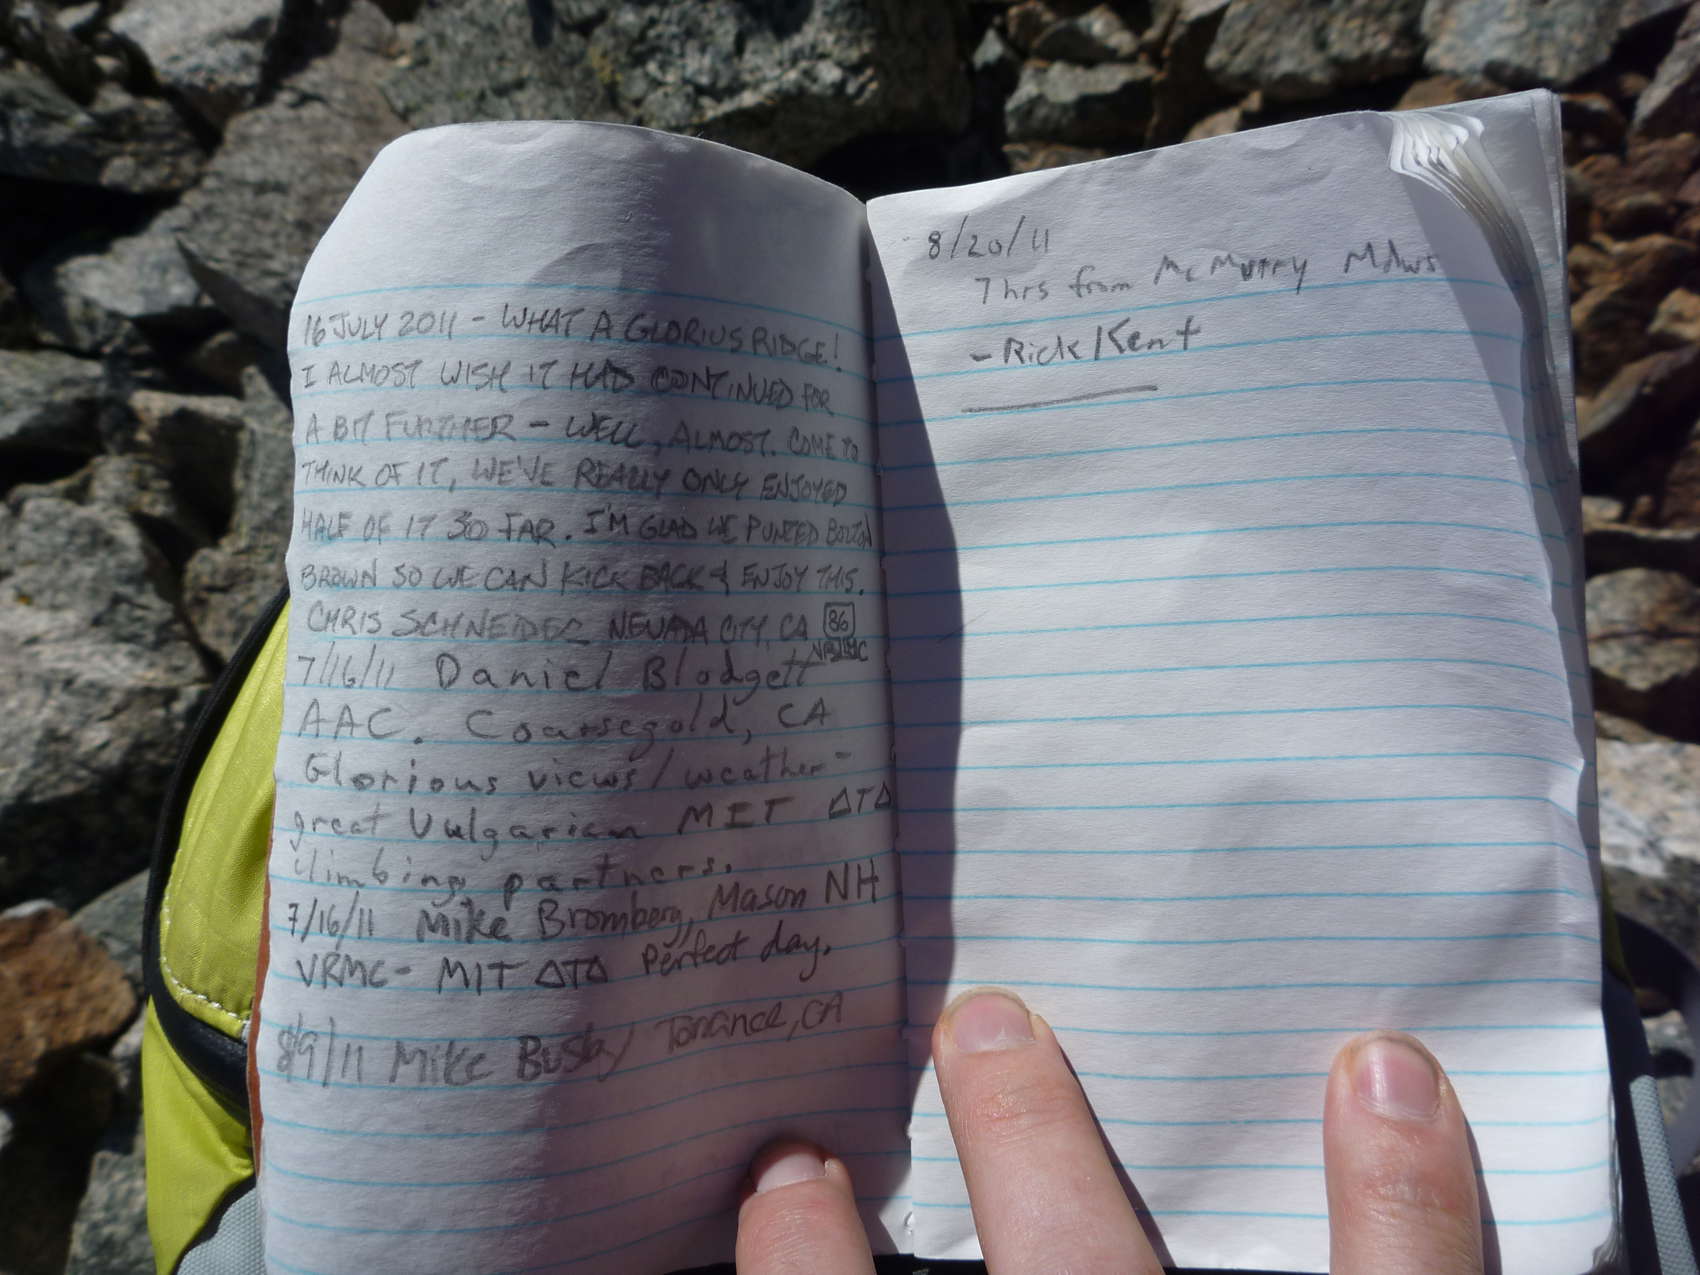 16 JULY 2011 - WHAT A GLORIUS RIDGE!
I ALMOST WISH IT HAD CONTINUED FOR
A BIT FURTHER - WELL, ALMOST. COME TO
THINK OF IT, WE'VE REALLY ONLY ENJOYED
HALF OF IT SO FAR. I'M GLAD WE PUNTED BOLTON
BROWN SO WE CAN KICK BACK & ENJOY THIS.
CHRIS SCHNEIDER NEVADA CITY, CA 86
7/16/11 Daniel Blodgett
AAC. Coarsegold, CA
Glorious views/weather -
great Vulgarian MIT ΔTΔ
climbing partners.
7/16/11 Mike Bromberg, Mason NH
VRMC - MIT ΔTΔ Perfect day.
8/9/11 Mike Busby Torrance, CA
8/20/11
7 hrs from McMurry Mdws
- Rick Kent